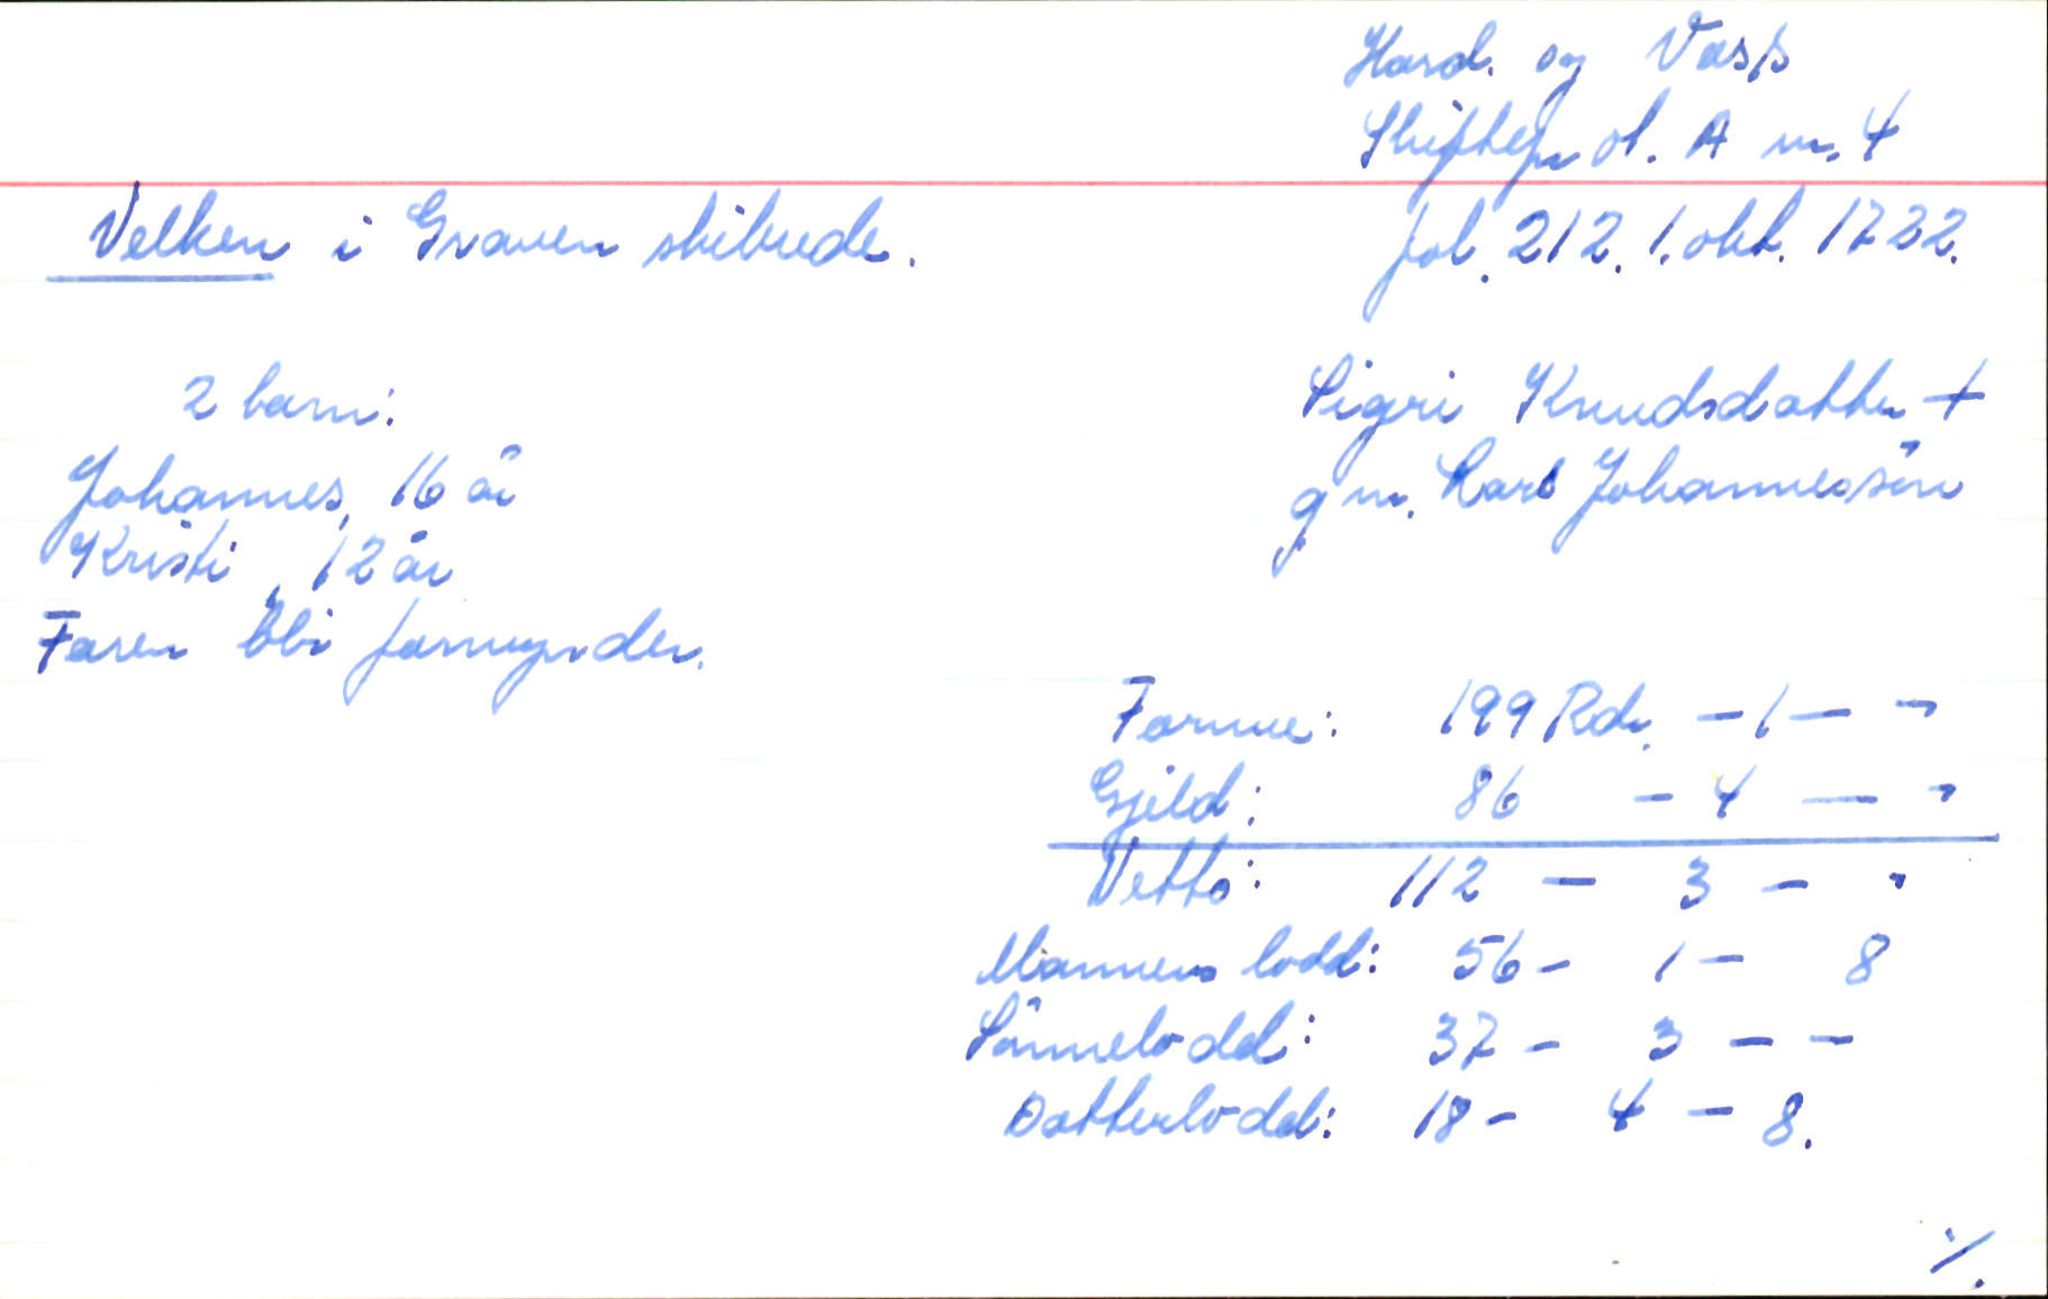 Hard. og Voss
Skiftepr ot. A nr. 4
fol. 212. 1. okt. 1722.
Velken i Graven skibrede.
2 barn:
Johannes, 16 år
Kristi, 12 år
Faren blir formynder.
Sigri Knudsdotter +
g m. Lars Johannessøn
Formue: 199 Rdr. - 1 - "
Gjeld: 86 - 4 - "
Netto: 112 - 3 - "
Mannens lodd: 56 - 1 - 8
Sønnelodd: 37 - 3 - -
Dotterlodd: 18 - 4 - 8.
./.